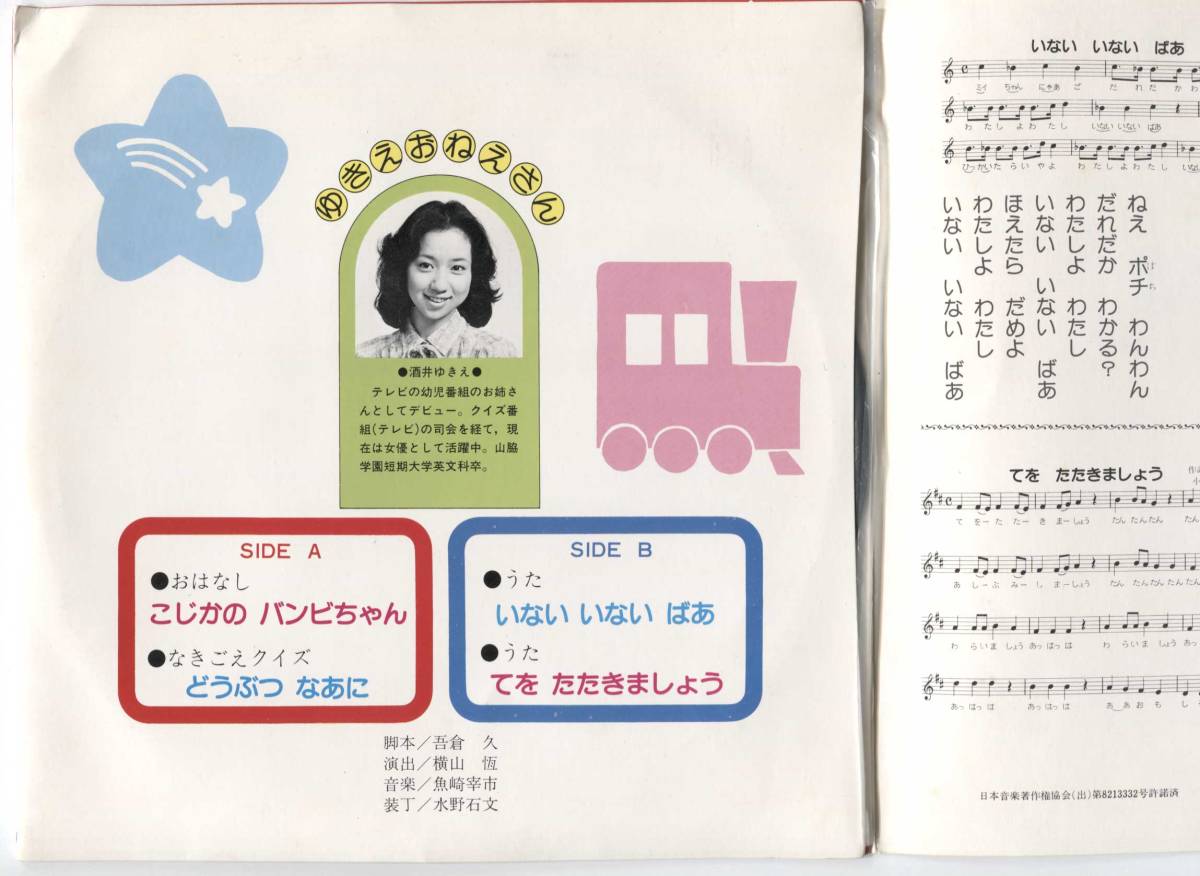 ゆきえおねえさん
●酒井ゆきえ●
テレビの幼児番組のお姉さ
んとしてデビュー。クイズ番
組(テレビ)の司会を経て，現
在は女優として活躍中。山脇
学園短期大学英文科卒。
SIDE A
●おはなし
こじかの バンビちゃん
●なきごえクイズ
どうぶつ なあに
SIDE B
●うた
いない いない ばあ
●うた
てを たたきましょう
脚本／吾倉 久
演出／横山 恆
音楽／魚崎宰市
装丁／水野石文
いない いない ばあ
ミイ ちゃん にゃあご だれだ かわ
わたし よわたし いない いない ばあ
ひっかいたら いやよ わたしよわたし いな
ねえ ポチ わんわん
だれだか わかる？
わたしよ わたし
いない いない ばあ
ほえたら だめよ
わたしよ わたし
いない いない ばあ
てを たたきましょう
てをーた たーきまーしょう たん たんたん たん
あしーぶ みーしまーしょう たん たんたんたん
わ らいま しょう あっはっは わ らいま しょう あっ
あっはっは あっはっは あ あおもし
日本音楽著作権協会(出)第8213332号許諾済